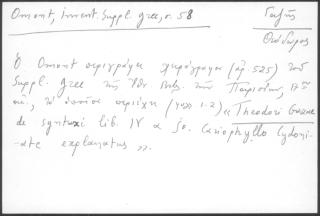 Omont, Invent. Suppl. grec, σ. 58
Γαζῆς
Θεόδωρος
Ὁ Omont περιγράφει χειρόγραφον (ἀρ. 525) τοῦ
Suppl. grec τῆς Ἐθν. Βιβλ. τῶν Παρισίων, 17ου
αἰ., τὸ ὁποῖον περιέχει (φύλλ. 1-2) « Theodori Gazae
de syntaxi lib. IV a Jo. Cariophyllo Cydoni-
ate explanatus ».